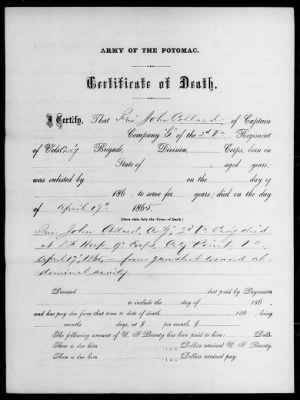 ARMY OF THE POTOMAC.
Certificate of Death.
I Certify, That John Allard of Captain
Company "G" of the 2d Va Regiment
of Brigade, Division, Corps, born in
State of , aged years;
was enlisted by on the day of
186 , to serve for years; died on the day
of April 17th 1865
(Here state fully the Cause of Death.)
John Allard, Co G, 2d Va Cavy died
at Hosp. 9th Corps, City Point, Va.
April 17th 1865 from gunshot wound ab-
dominal cavity
Deceased last paid by Paymaster
to include the day of 186 ,
and has pay due from that time to date of death, 186 , being
months days, at $ per month, $
The following amount of U. S. Bounty has been paid to him: Dolls.
There is due him Dollars retained U. S. Bounty.
There is due him Dollars retained pay.